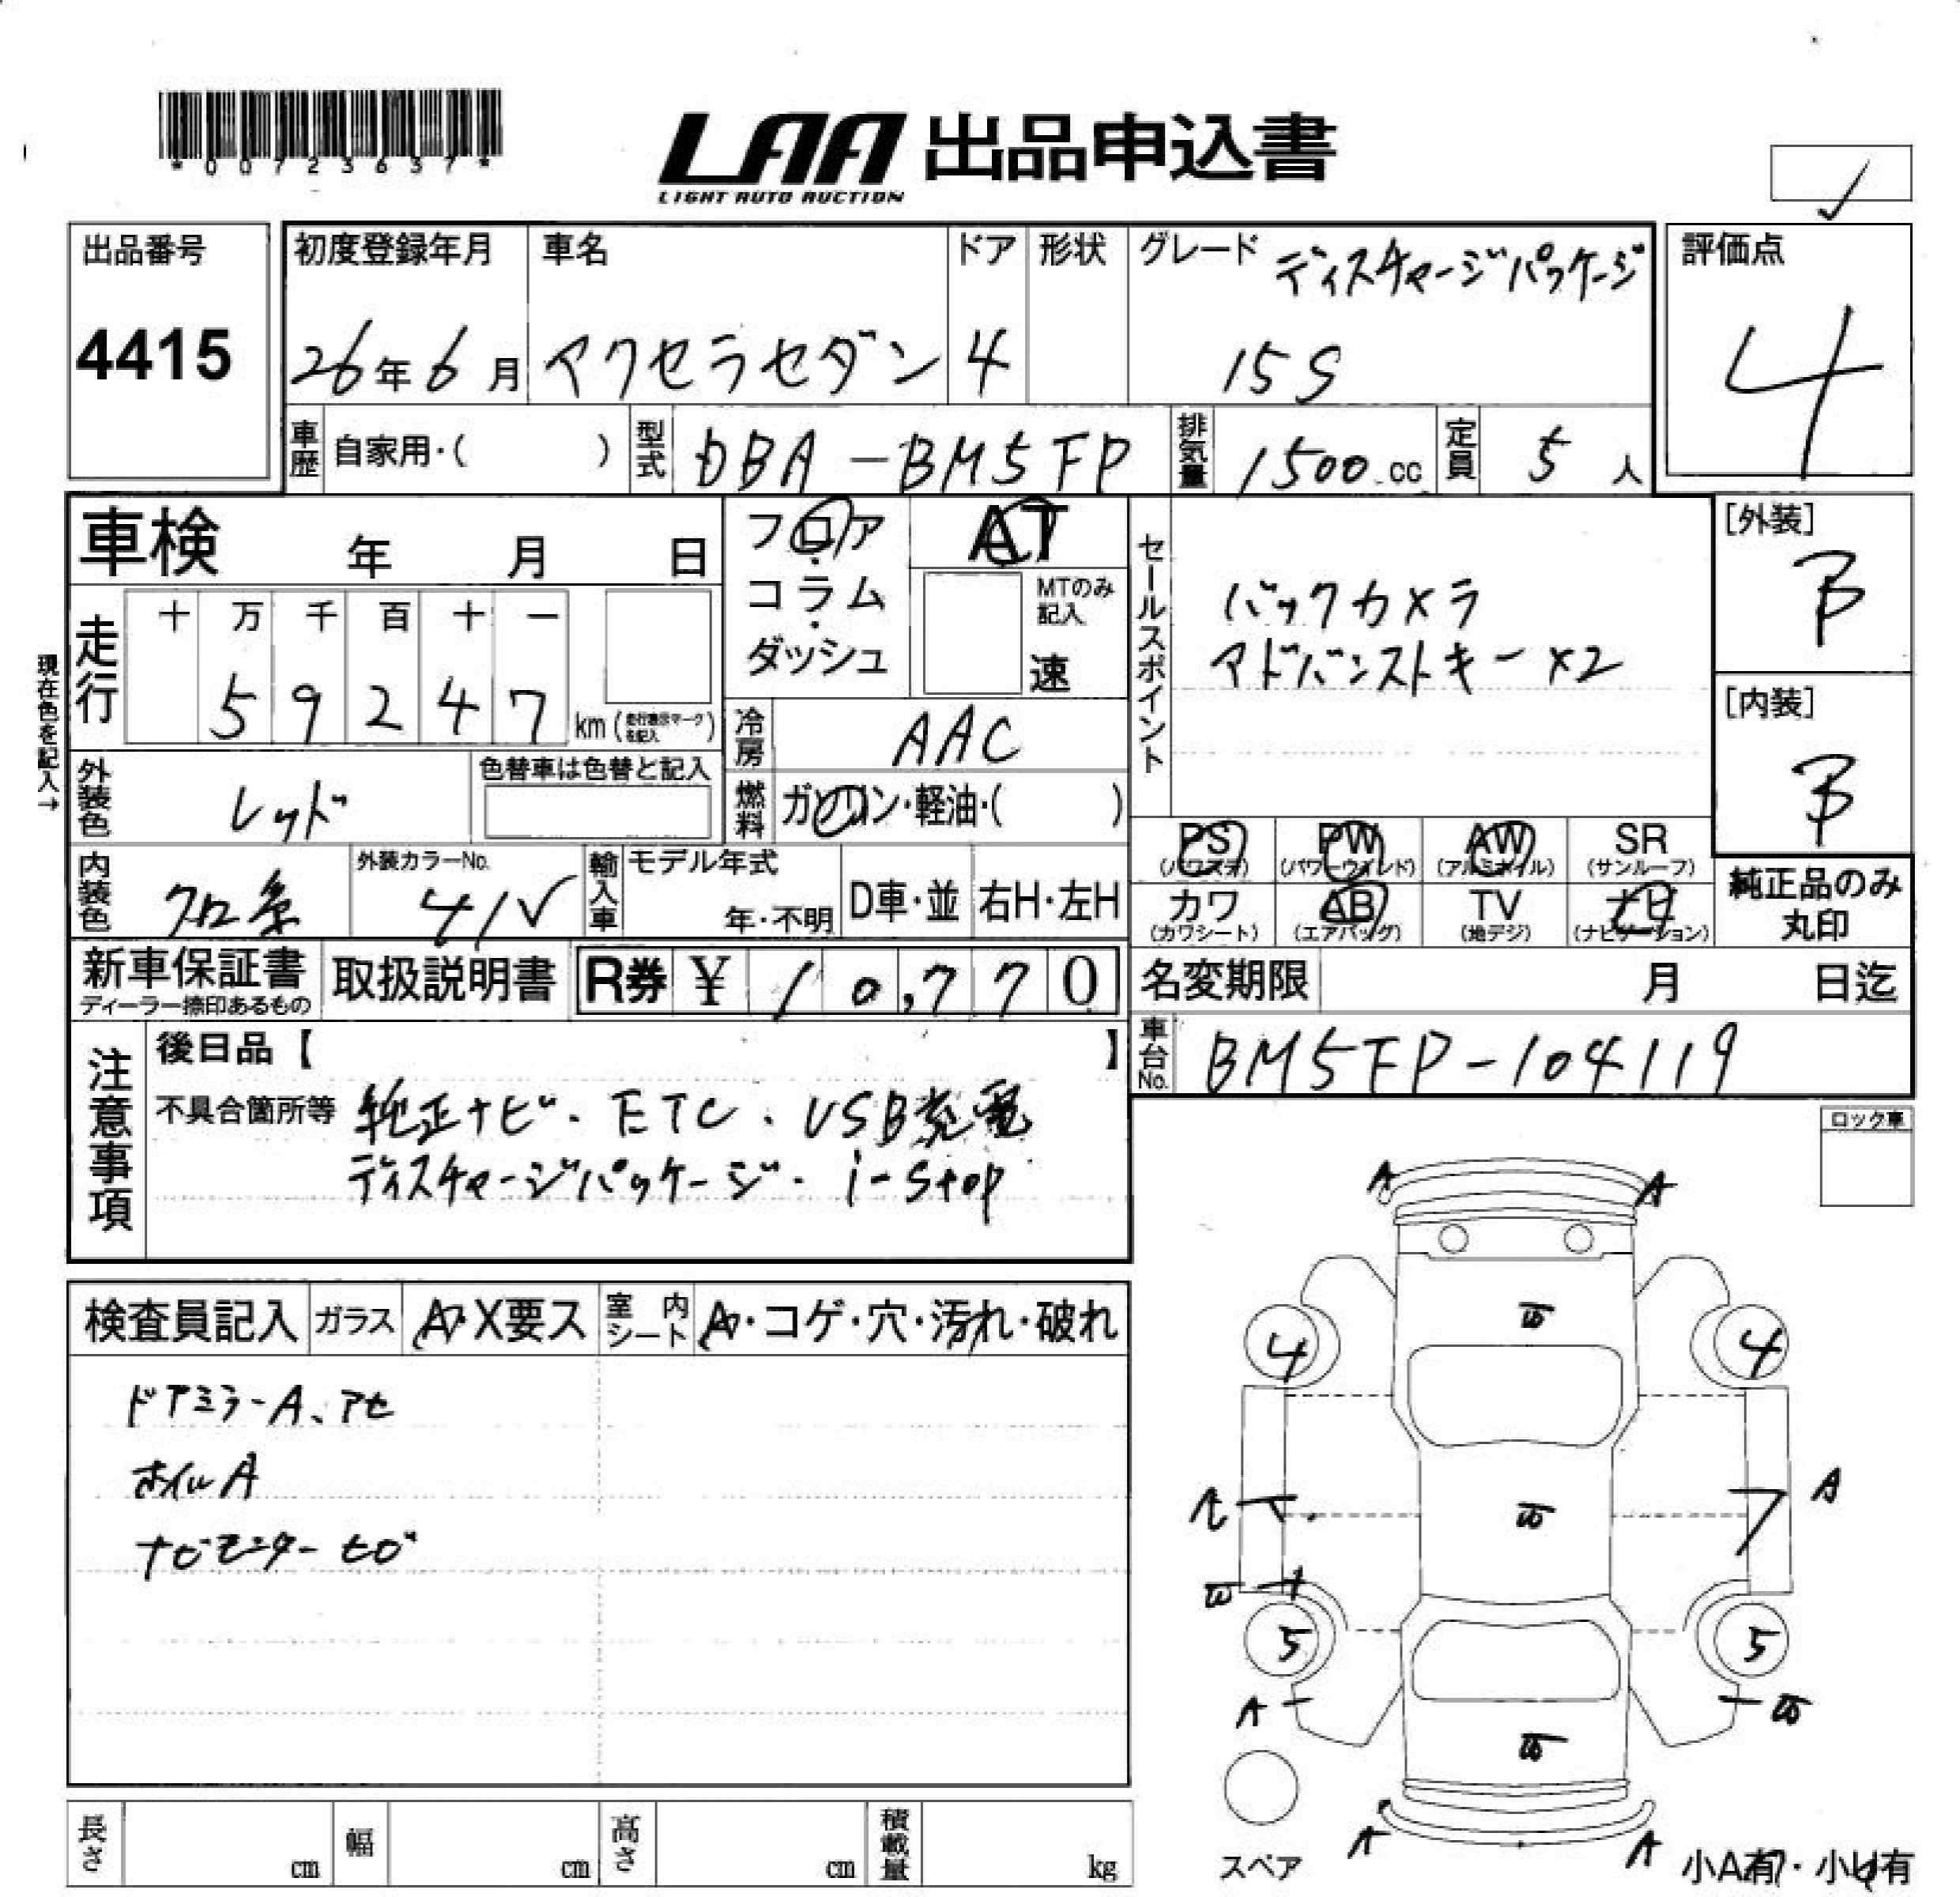 *00723637*
LAA 出品申込書
LIGHT AUTO AUCTION
出品番号
4415
初度登録年月
26年6月
車名
アクセラセダン
ドア
4
形状
グレード ディスチャージパッケージ
15S
評価点
4
車歴 自家用・( )
型式 DBA-BM5FP
排気量 1500.cc
定員 5人
車検 年 月 日
走行
十 万 千 百 十 一
5 9 2 4 7 km (走行表示マークを記入)
現在色を記入→
フロア
・
コラム
・
ダッシュ
AT
MTのみ記入
速
冷房 AAC
燃料 ガソリン・軽油・( )
セールスポイント
バックカメラ
アドバンストキー×2
[外装]
B
[内装]
B
外装色 レッド
色替車は色替と記入
内装色 クロ系
外装カラーNo.
41V
輸入車 モデル年式
年・不明
D車・並 右H・左H
PS (パワステ)
PW (パワーウインド)
AW (アルミホイル)
SR (サンルーフ)
カワ (カワシート)
AB (エアバッグ)
TV (地デジ)
ナビ (ナビゲーション)
純正品のみ
丸印
新車保証書
ディーラー捺印あるもの
取扱説明書
R券 ¥ 10,770
名変期限 月 日迄
車台No. BM5FP-104119
注意事項
後日品【 】
不具合箇所等 純正ナビ・ETC・USB充電
ディスチャージパッケージ・i-stop
ロック車
検査員記入 ガラス A・X要ス
室内シート ・コゲ・穴・汚れ・破れ
ドアミラーA、アセ
ホイルA
ナビモニターセロ
A A
4 4
A
5 5
A
A A
スペア
小A有・小U有
長さ cm
幅 cm
高さ cm
積載量 kg